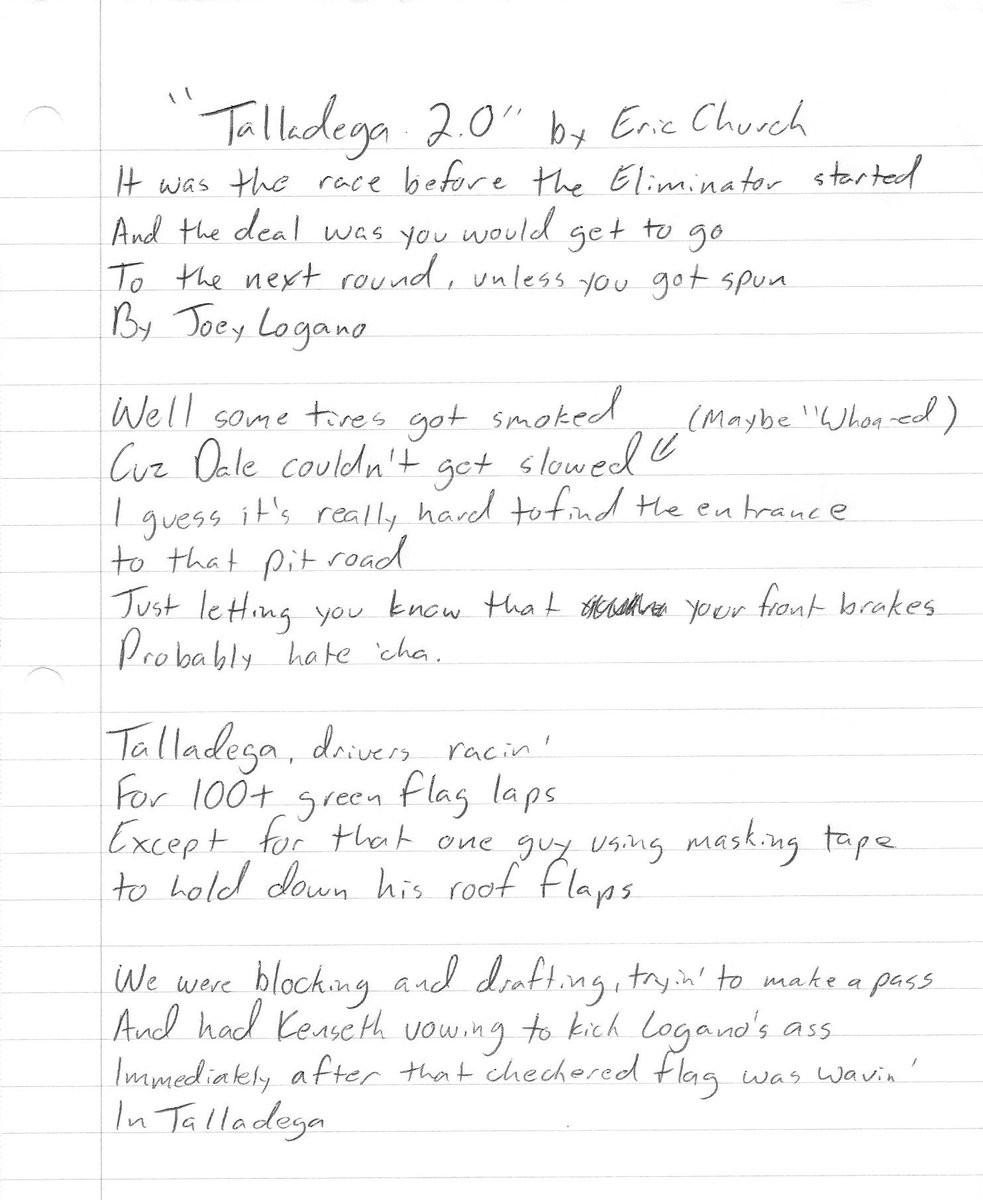 "Talladega 2.0" by Eric Church
It was the race before the Eliminator started
And the deal was you would get to go
To the next round, unless you got spun
By Joey Logano
Well some tires got smoked (Maybe "Whoa-ed)
Cuz Dale couldn't get slowed
I guess it's really hard to find the entrance
to that pit road
Just letting you know that your front brakes
Probably hate 'cha.
Talladega, drivers racin'
For 100+ green flag laps
Except for that one guy using masking tape
to hold down his roof flaps
We were blocking and drafting, tryin' to make a pass
And had Kenseth vowing to kick Logano's ass
Immediately after that checkered flag was wavin'
In Talladega